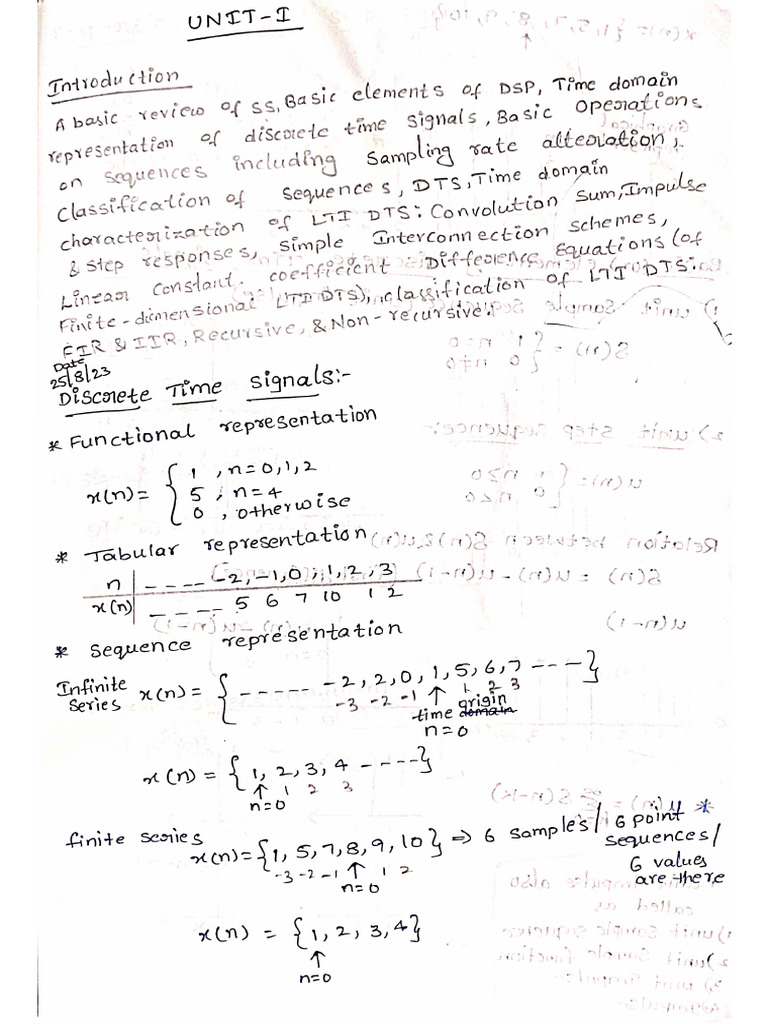 UNIT-I
Introduction
A basic review of SS, Basic elements of DSP, Time domain
representation of discrete time signals, Basic operations
on sequences including sampling rate alteration,
classification of sequences, DTS, Time domain
characterization of LTI DTS: Convolution Sum, Impulse
& step responses, simple Interconnection schemes,
Linear Constant coefficient Difference Equations (of
Finite-dimensional LTI DTS), classification of LTI DTS:
FIR & IIR, Recursive, & Non-recursive.
Date
25/8/23
Discrete Time signals:-
* Functional representation
x(n) = { 1 , n=0,1,2
5 , n=4
0 , otherwise
* Tabular representation
n | - - - - -2, -1, 0, 1, 2, 3
x(n) | - - - - 5 6 7 10 1 2
* Sequence representation
Infinite series x(n) = { - - - - - -2, 2, 0, 1, 5, 6, 7 - - - }
-3 -2 -1 ↑ 1 2 3
time origin domain
n=0
x(n) = { 1, 2, 3, 4 - - - - }
↑ 1 2 3
n=0
finite series x(n) = {1, 5, 7, 8, 9, 10} ⇒ 6 samples / 6 point sequences / 6 values are there *
-3 -2 -1 ↑ 1 2
n=0
x(n) = {1, 2, 3, 4}
↑
n=0